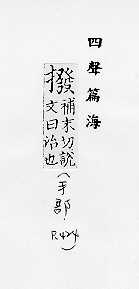 四聲篇海
撥補末切說
文曰治也
(手部)
P.424